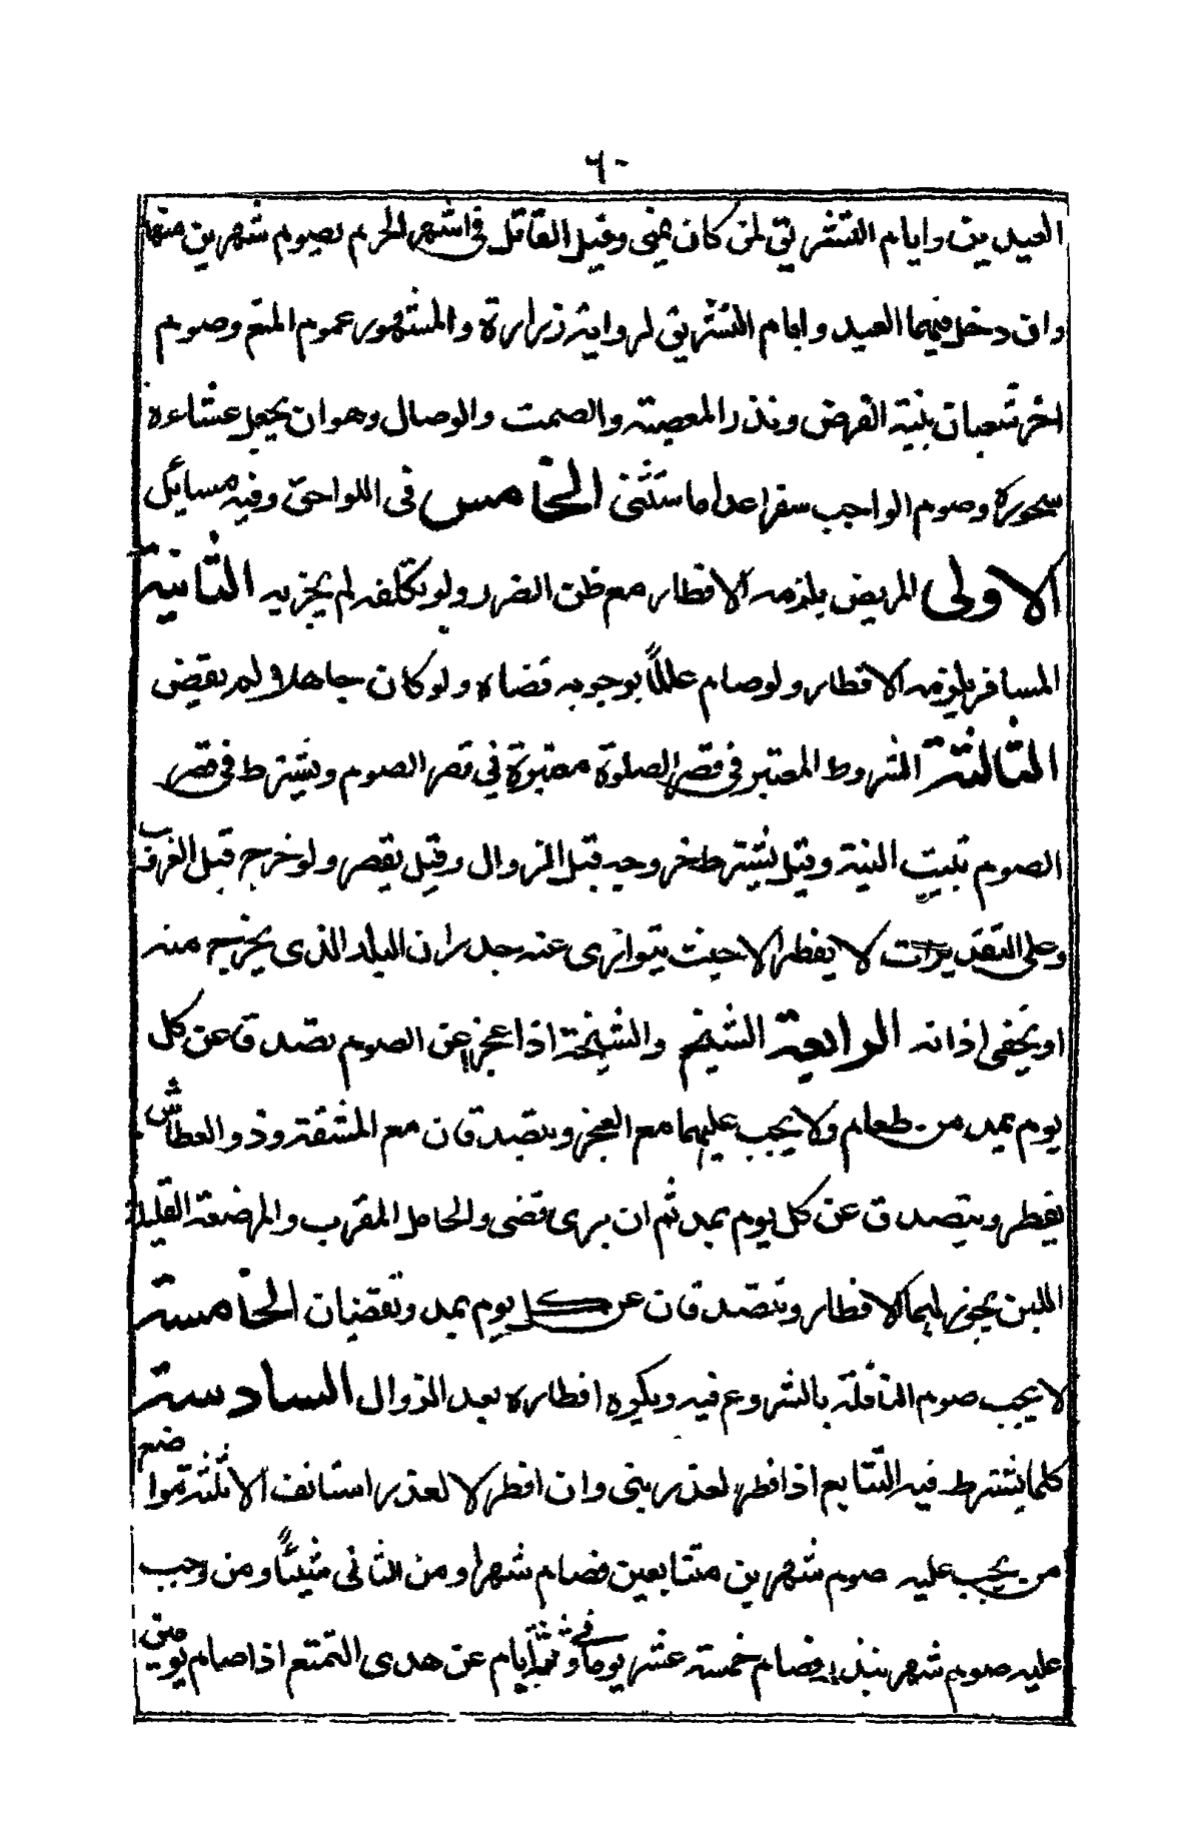 ٦٠
العيدين وايام التشريق لمن كان بمنى وقيل القاتل فى اشهر الحرم يصوم شهرين منها
وان دخل فيهما العيد وايام التشريق لرواية زرارة والمشهور عموم المنع وصوم
اخر شعبان بنية الفرض ونذر المعصية والصمت والوصال وهو ان يجعل عشاءه
سحوره وصوم الواجب سفرا عدا ما ستثنى الخامس فى اللواحق وفيه مسائل
الاولى المريض يلزمه الافطار مع ظن الضرر ولو تكلفه لم يجزيه الثانية
المسافر يلزمه الافطار ولو صام عالماً بوجوبه قضاه ولو كان جاهلا لم يقضى
الثالثة الشروط المعتبر فى قصر الصلوة معتبرة فى قصر الصوم ويشترط فى قصر
الصوم تبييت النية وقيل يشترط خروجه قبل الزوال وقيل يقصر ولو خرج قبل الغروب
وعلى التقديرات لا يفطر الا حيث يتوارى عنه جدران البلد الذى يخرج منه
او يخفى اذانه الرابعة الشيخ والشيخة اذا عجزا عن الصوم تصدقا عن كل
يوم بمد من طعام ولا يجب عليهما مع العجز ويتصدقان مع المشقة وذو العطاش
يفطر ويتصدق عن كل يوم بمد ثم ان برى قضى والحامل المقرب والمرضعة القليلة
اللبن يجوز لهما الافطار ويتصدقان عن كل يوم بمد وتقضيان الخامسة
لا يجب صوم النافلة بالشروع فيه ويكره افطاره بعد الزوال السادسة
كلما يشترط فيه التتابع اذا فطر لعذر بنى وان افطر لا لعذر استانف الا ثلثة مواضع
من يجب عليه صوم شهرين متتابعين فصام شهرا ومن الثانى شيئاً ومن وجب
عليه صوم شهر بنذر فصام خمسة عشر يوما وفى ثلثة ايام عن هدى التمتع اذا صام يومين